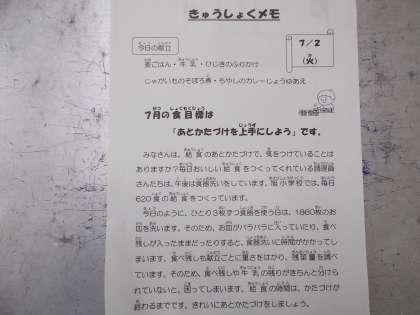 きゅうしょくメモ
今日の献立
7/2
(火)
麦ごはん・牛乳・ひじきのふりかけ
じゃがいものそぼろ煮・もやしのカレーじょうゆあえ
7月の食目標は
「あとかたづけを上手にしよう」です。
みなさんは、給食のあとかたづけで、気をつけていることは
ありますか?毎日おいしい給食をつくってくれている調理員
さんたちは、午後は食器洗いをしています。旭小学校では、毎日
620食の給食をつくっています。
今日のように、ひとり3枚ずつ食器を使う日は、1860枚のお
皿を洗います。そのため、お皿がバラバラに入っていたり、食べ
残しが入ったままだったりすると、食器洗いに時間がかかってし
まいます。食べ残しも献立ごとに重さをはかり、残菜量を調べ
ています。そのため、食べ残しや牛乳の残りがきちんと分けら
れていないと、困ってしまいます。給食の時間は、かたづけが
終わるまでです。きれいにあとかたづけをしましょう。